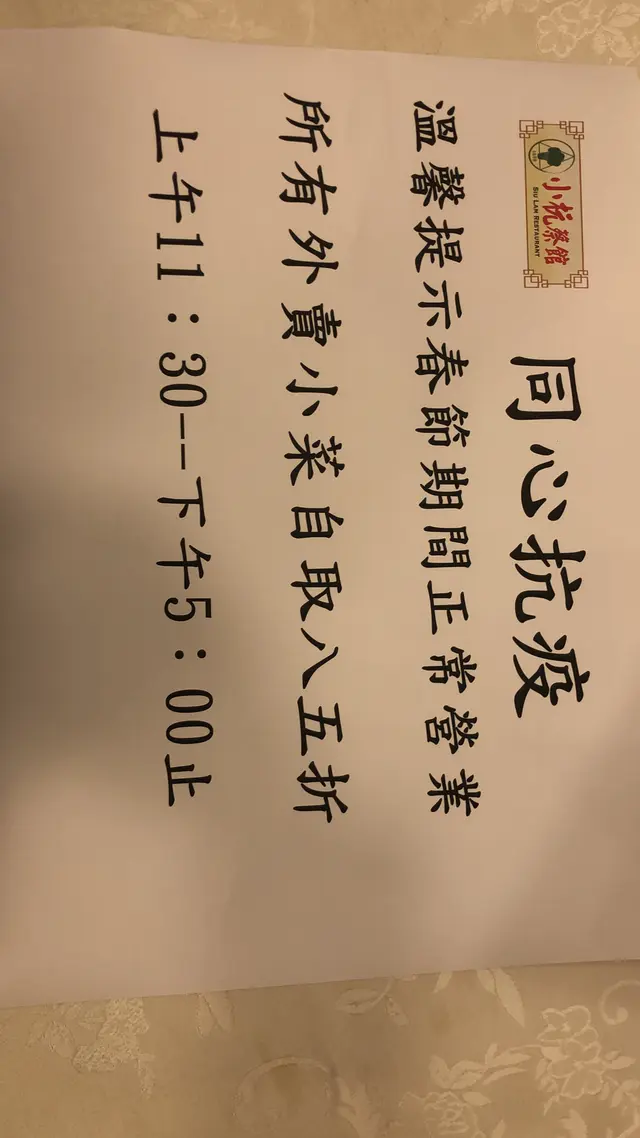 小杭祭館
SIU LAN RESTAURANT
同心抗疫
溫馨提示春節期間正常營業
所有外賣小菜自取八五折
上午11：30--下午5：00止